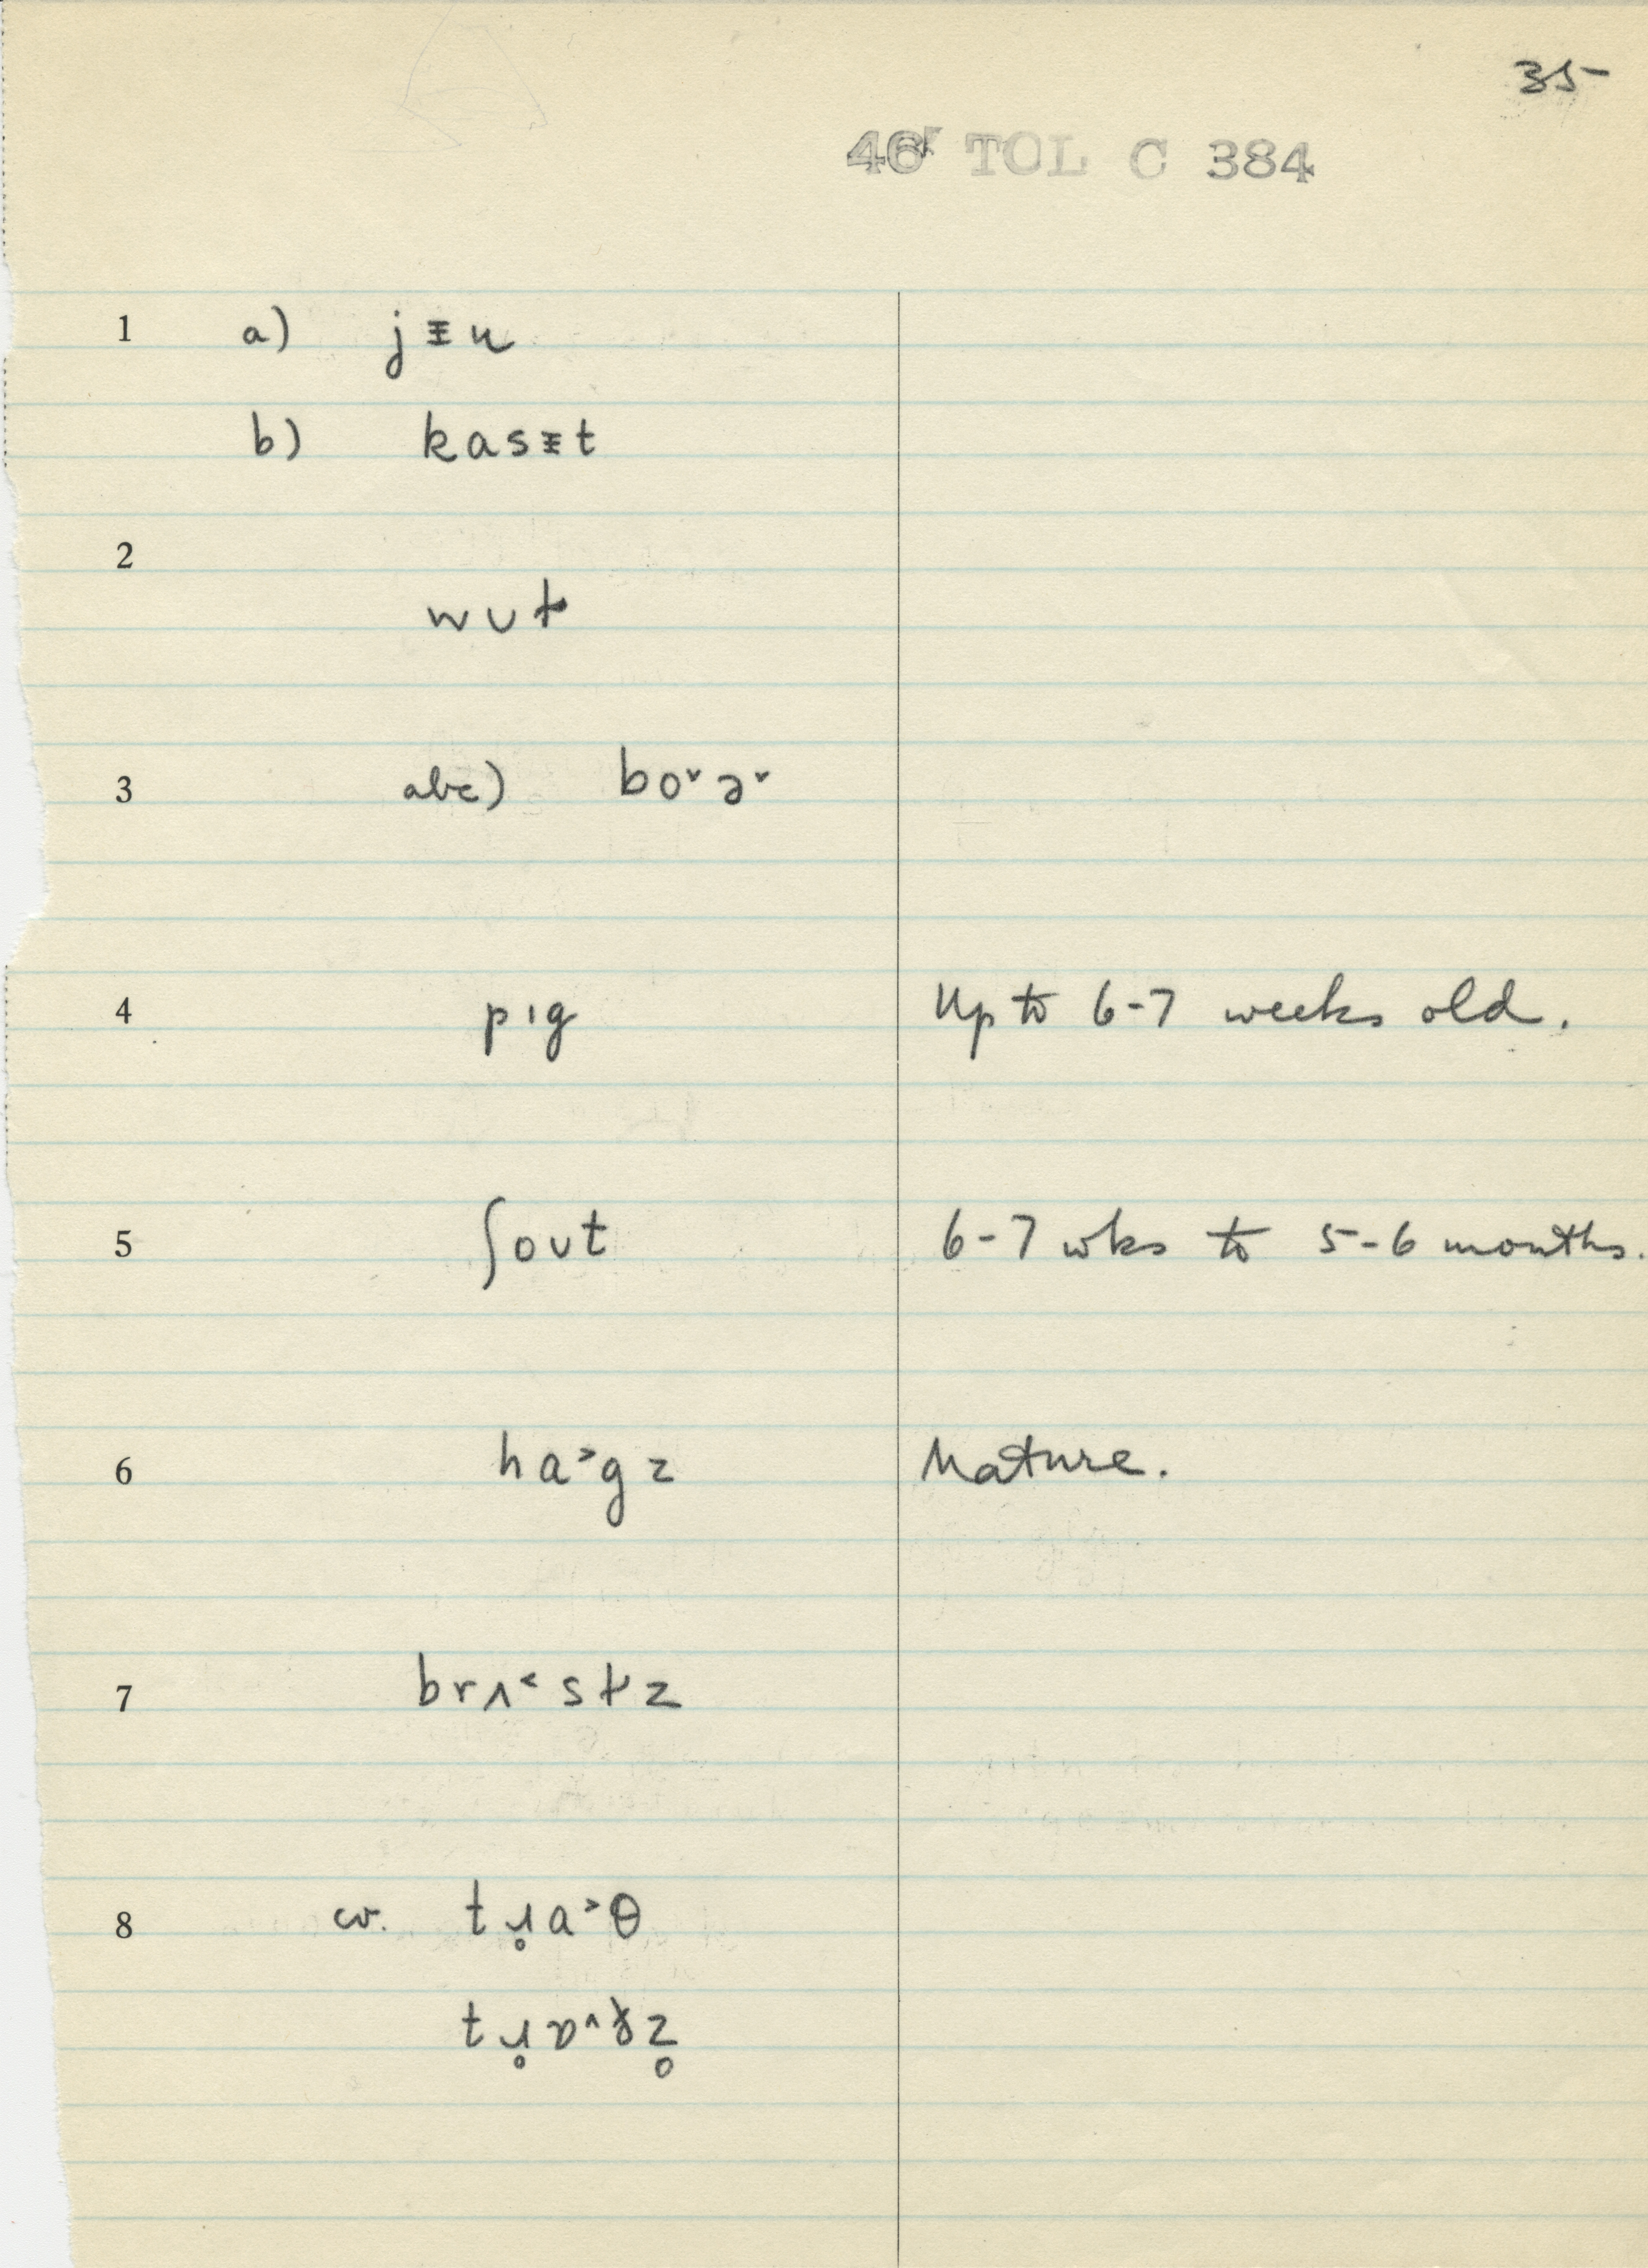 35-
46 TOL C 384
1 a) jᵻu
b) kasᵻt
2
wʊt
3 abc) bo˅ə˅
4 pɪg Up to 6-7 weeks old.
5 ʃoʊt 6-7 wks to 5-6 months.
6 ha˃gz Mature.
7 brʌ˂stz
8 cv. tɹ̥a˃θ
tɹ̥ɒ˄ðz̥